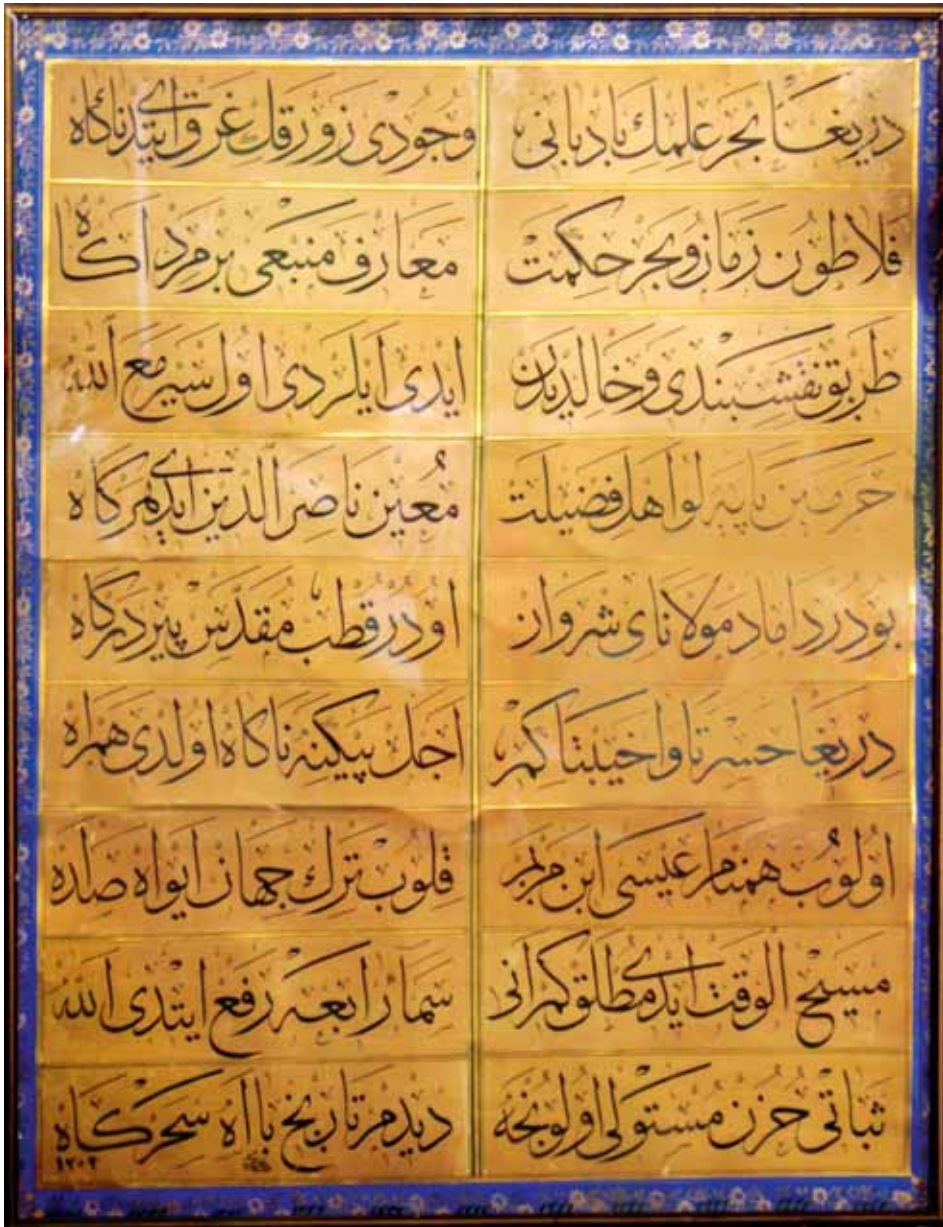 دریغا بحر علمك بادبانی
وجودی زورقك غرق ایتدی ناكاه
فلاطون زمان و بحر حكمت
معارف منبعی بر مرد اكاه
طریق نقشبندی و خالدیدن
ایدی ایلردی اول سیر مع الله
حرمین پایه لو اهل فضیلت
معین ناصر الدین ایدی هر كاه
بودر داماد مولانای شروان
اودر قطب مقدس پیر دركاه
دریغا حسرتا واخیبتا كم
اجل پیكینه ناكاه اولدی همراه
اولوب همنام عیسی ابن مریم
قلوب ترك جهان ایواه صد اه
مسیح الوقت ایدی مطلق كمرانی
سما رابعه رفع ایتدی الله
ثباتی حزن مستولی اولونجه
دیدم تاریخ با اه سحركاه
١٣٠٢